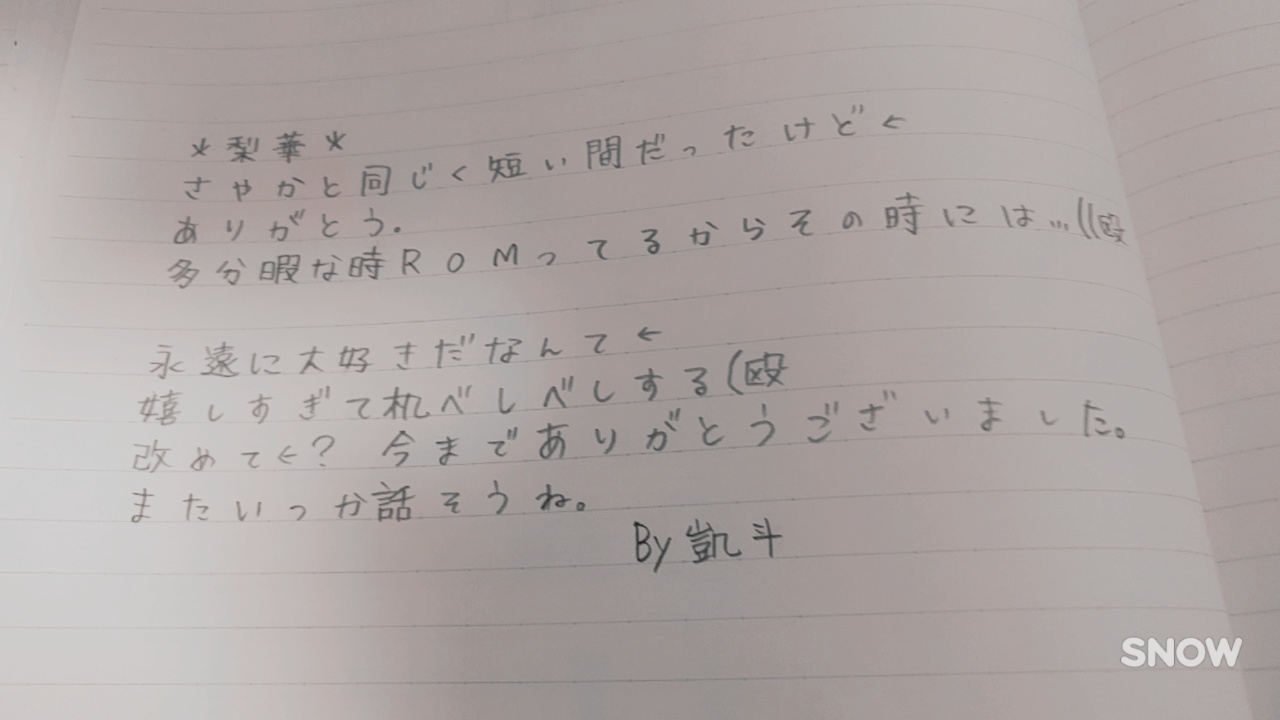 *梨華*
さやかと同じく短い間だったけど←
ありがとう。
多分暇な時ROMってるからその時には…((殴
永遠に大好きだなんて←
嬉しすぎて机べしべしする(殴
改めて←? 今までありがとうございました。
またいっか話そうね。
By 凱斗
SNOW